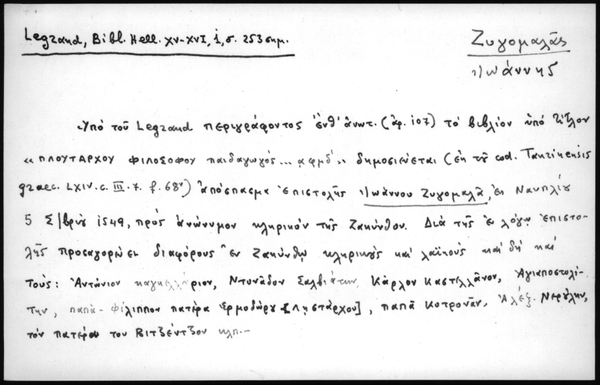 Legrand, Bibl. Hell. XV-XVI, i, σ. 253 σημ.
Ζυγομαλᾶς
Ἰωάννης
Ὑπὸ τοῦ Legrand περιγράφοντος ἐνθ' ἀνωτ. (ἀρ. 107) τὸ βιβλίον ὑπὸ τίτλον
«ΠΛΟΥΤΑΡΧΟΥ ΦΙΛΟΣΟΦΟΥ παιδαγωγός... αφμδ'» δημοσιεύεται (ἐκ τοῦ cod. Taurinensis
graec. LXIV. c. III. 7. f. 68ᵛ) ἀπόσπασμα ἐπιστολῆς Ἰωάννου Ζυγομαλᾶ, ἐκ Ναυπλίου
5 Σ/βρίου 1549, πρὸς ἀνώνυμον κληρικὸν τῆς Ζακύνθου. Διὰ τῆς ἐν λόγῳ ἐπιστο-
λῆς προσαγορεύει διαφόρους ἐν Ζακύνθῳ κληρικοὺς καὶ λαϊκοὺς καὶ δὴ καὶ
τοὺς: Ἀντώνιον Ντονᾶδον Κάρλον Καστελλάνον, Ἁγιαποστολί-
την, παπᾶ-Φίλιππον πατέρα Ἑρμοδώρου [Λῃστάρχου], παπᾶ Κοτρονᾶν, Ἀλέξ. Νερούλην,
τὸν πατέρα του Βιτζέντζον κλπ.-